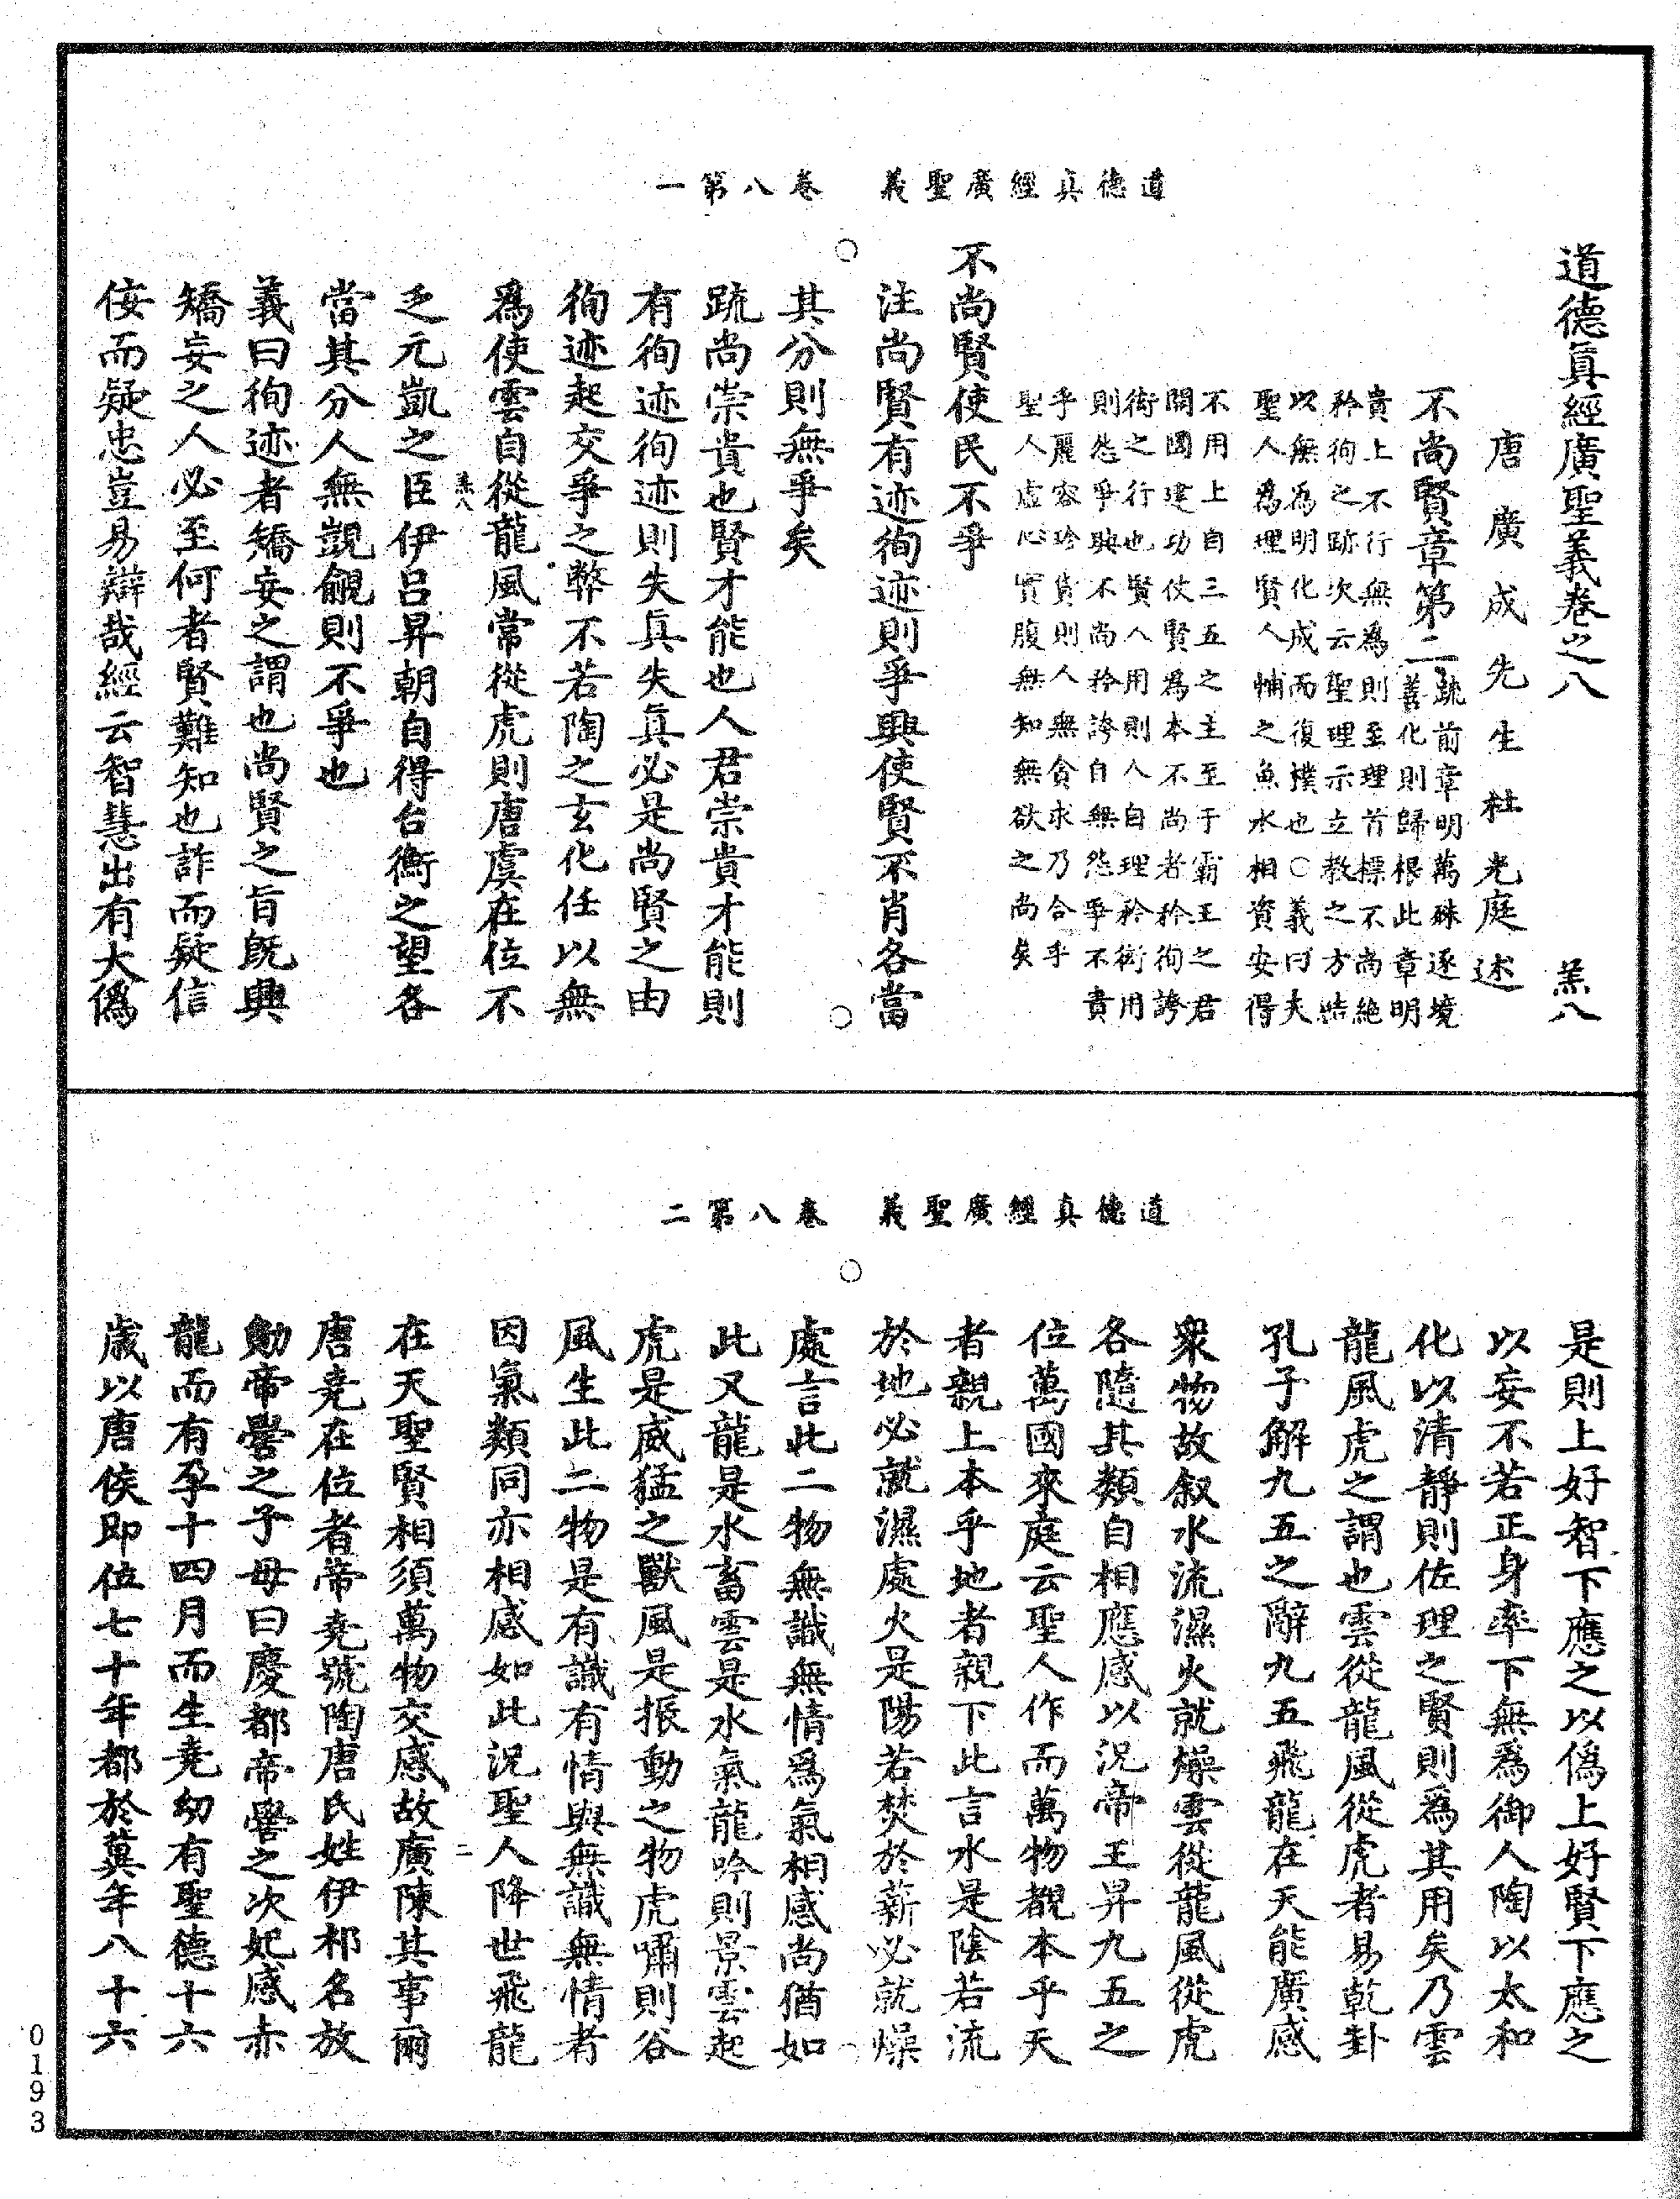 道德真經廣聖義　卷八第一
道德眞經廣聖義卷之八　羔八
唐廣成先生杜光庭述
不尚賢章第二
疏前章明萬殊逐境
善化則歸根此章明
貴上不行無為則至理首標不尚絶
矜徇之跡次云聖理示立教之方結
以無為明化成而復樸也○義曰夫
聖人為理賢人輔之魚水相資安得
不用上自三五之主至于霸王之君
開國建功仗賢為本不尚者矜徇誇
衒之行也賢人用則人自理矜衒用
則怨爭興不尚矜誇自無怨爭不貴
乎麗容珍貨則人無貪求乃合乎
聖人虛心實腹無知無欲之尚矣
不尚賢使民不爭
注尚賢有迹徇迹則爭興使賢不肖各當
其分則無爭矣
疏尚崇貴也賢才能也人君崇貴才能則
有徇迹徇迹則失眞失眞必是尚賢之由
徇迹起交爭之弊不若陶之玄化任以無
爲使雲自從龍風常從虎則唐虞在位不
羔八
乏元凱之臣伊呂昇朝自得台衡之望各
當其分人無覬覦則不爭也
義曰徇迹者矯妄之謂也尚賢之旨旣興
矯妄之人必至何者賢難知也詐而疑信
佞而疑忠豈易辯哉經云智慧出有大僞
道德真經廣聖義　卷八第二
是則上好智下應之以僞上好賢下應之
以妄不若正身率下無爲御人陶以太和
化以清靜則佐理之賢則爲其用矣乃雲
龍風虎之謂也雲從龍風從虎者易乾卦
孔子解九五之辭九五飛龍在天能廣感
衆物故叙水流濕火就燥雲從龍風從虎
各隨其類自相應感以況帝王昇九五之
位萬國來庭云聖人作而萬物覩本乎天
者親上本乎地者親下此言水是陰若流
於地必就濕處火是陽若焚於薪必就燥
處言此二物無識無情爲氣相感尚猶如
此又龍是水畜雲是水氣龍吟則景雲起
虎是威猛之獸風是振動之物虎嘯則谷
風生此二物是有識有情與無識無情者
因氣類同亦相感如此況聖人降世飛龍
二
在天聖賢相須萬物交感故廣陳其事爾
唐堯在位者帝堯號陶唐氏姓伊祁名放
勛帝嚳之子母曰慶都帝嚳之次妃感赤
龍而有孕十四月而生堯幼有聖德十六
歲以唐侯即位七十年都於冀年八十六
0193